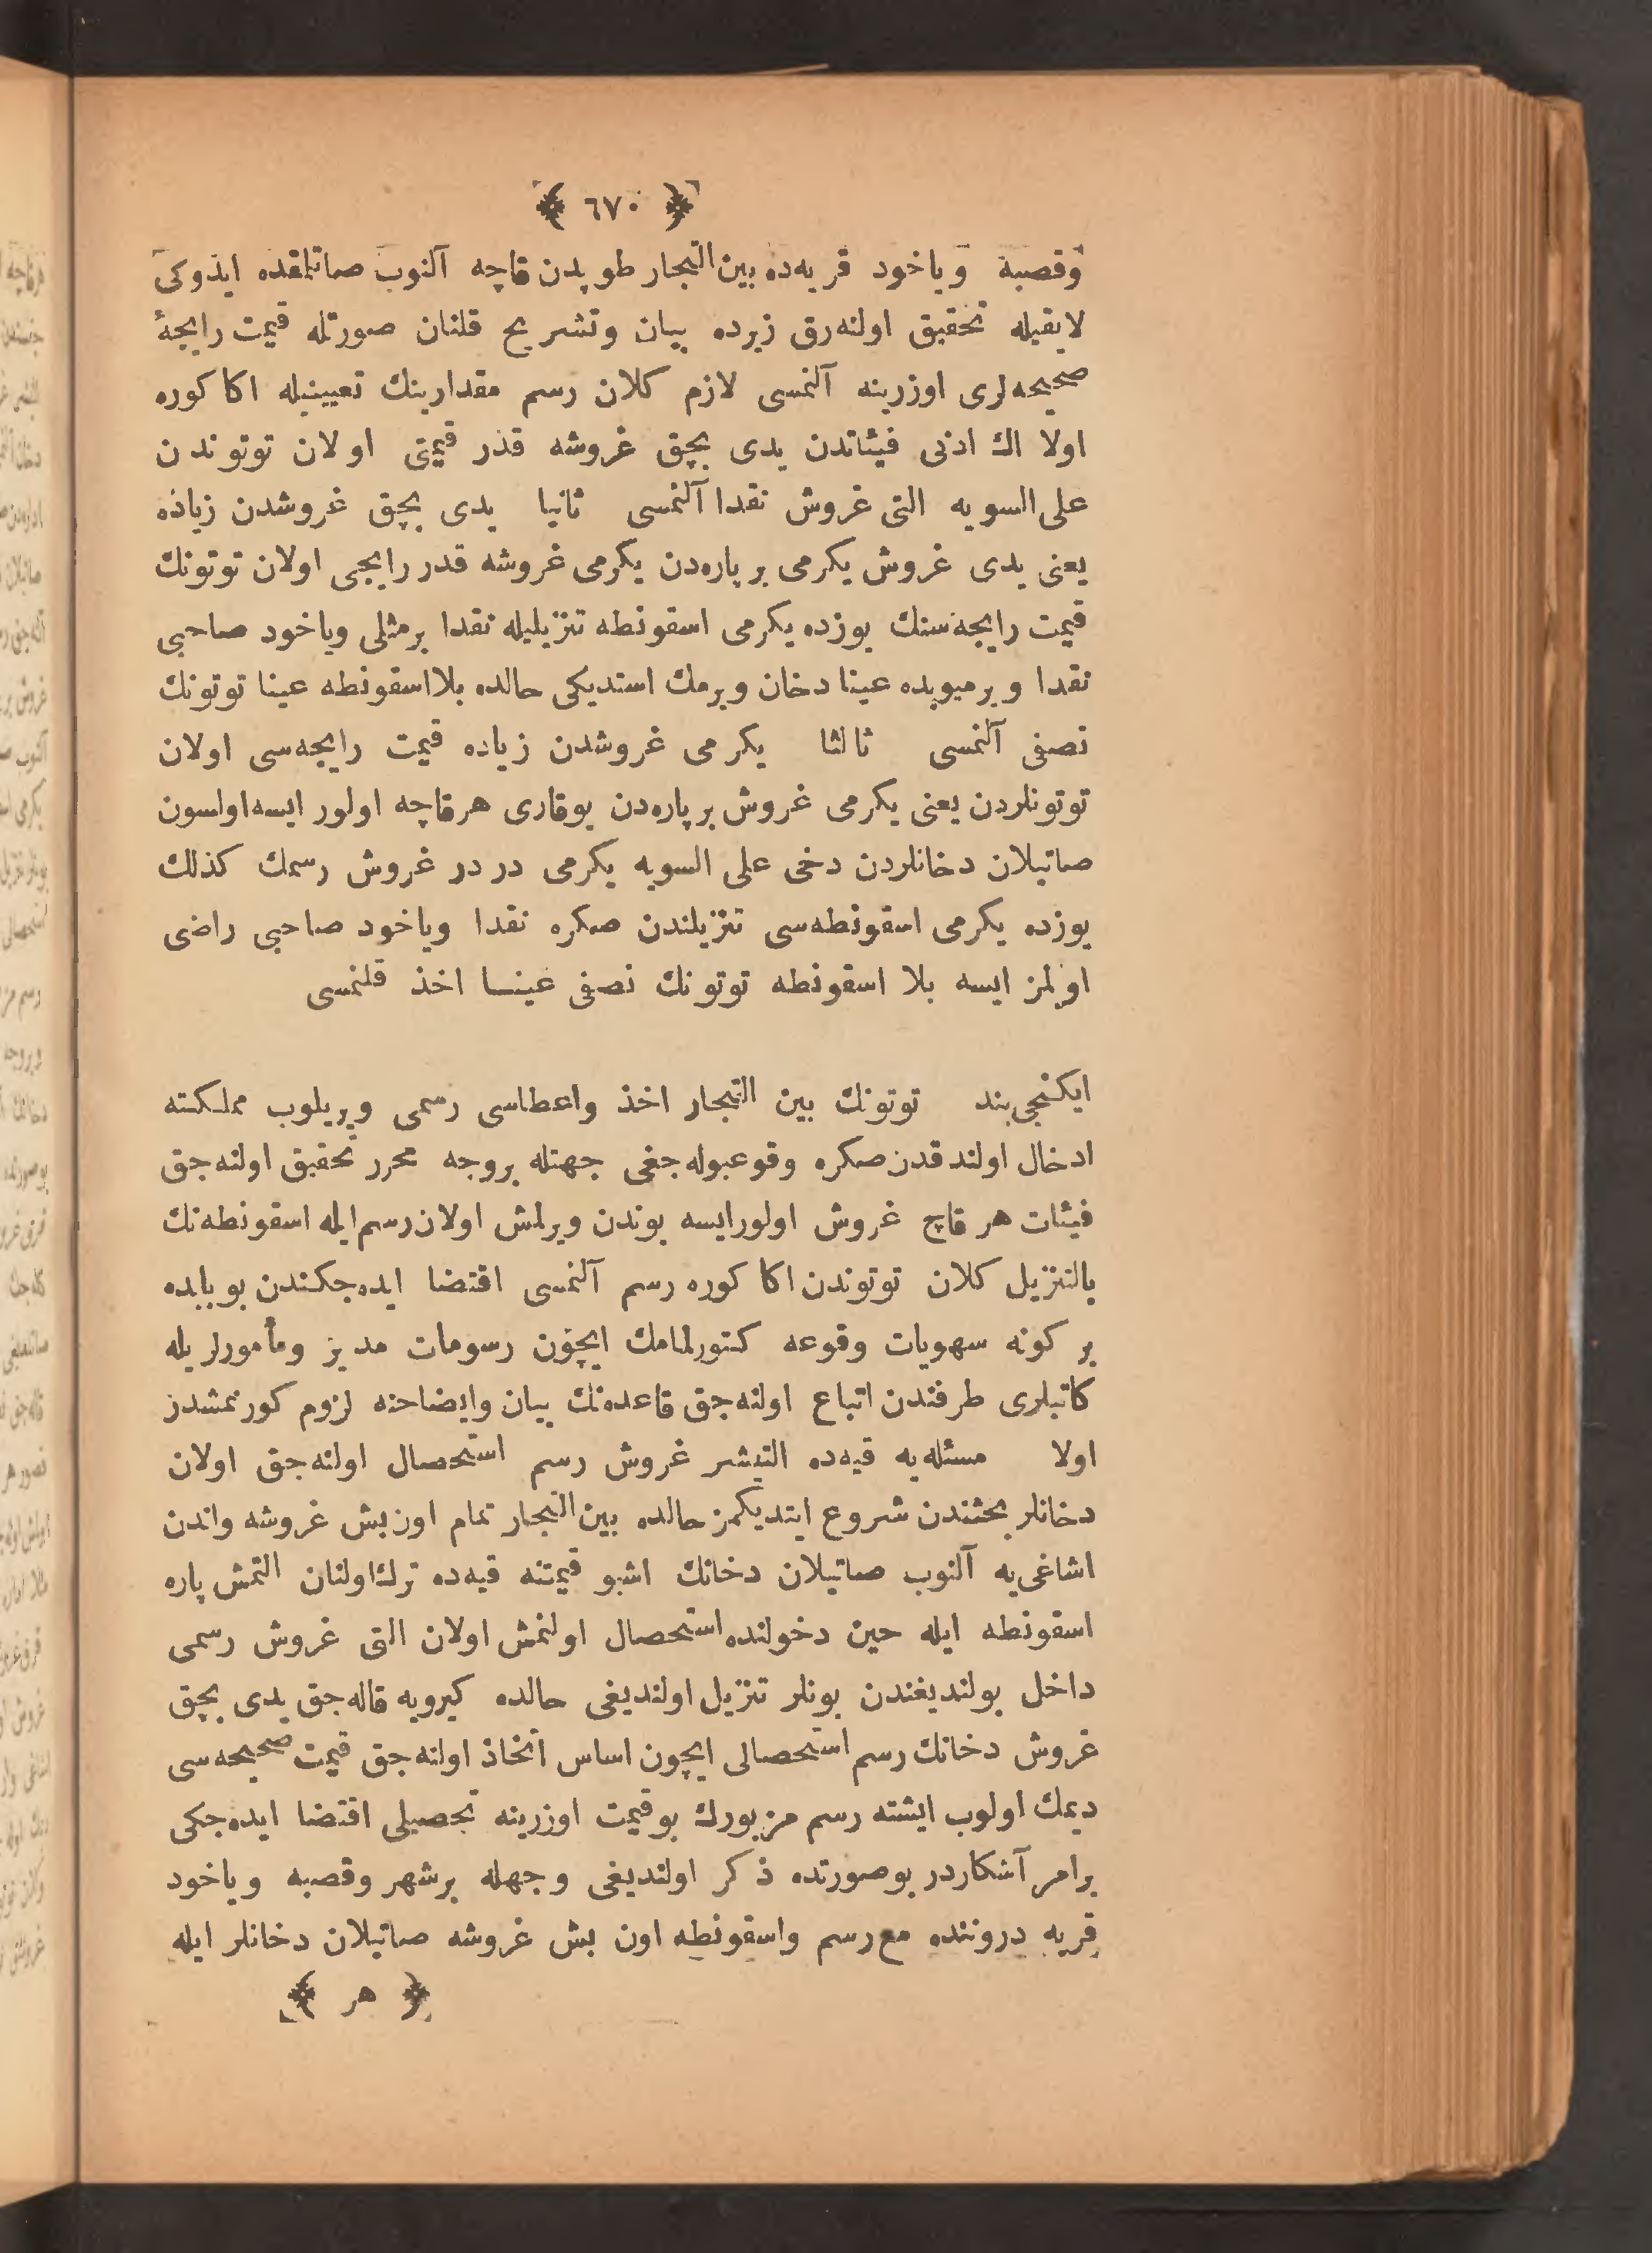 ﴿ ٦٧٠ ﴾
وقصبه وياخود قريه‌ده بين التجار طوپدن قاچه آلنوب صاتلمقده ايدوكى
لايقيله تحقيق اولنه‌رق زيرده بيان وتشريح قلنان صورتله قيمت رايجهٔ
صحيحه‌لرى اوزرينه آلنمسى لازم كلان رسم مقدارينك تعيينيله اكا كوره
اولا اك ادنى فيئاتدن يدى بچق غروشه قدر قيمتى اولان توتوندن
على السويه التى غروش نقدا آلنمسى ثانيا يدى بچق غروشدن زياده
يعنى يدى غروش يكرمى بر پاره‌دن يكرمى غروشه قدر رايجى اولان توتونك
قيمت رايجه‌سنك يوزده يكرمى اسقونطه تنزيليله نقدا برمثلى وياخود صاحبى
نقدا ويرميوبده عينا دخان ويرمك استديكى حالده بلااسقونطه عينا توتونك
نصفى آلنمسى ثالثا يكرمى غروشدن زياده قيمت رايجه‌سى اولان
توتونلردن يعنى يكرمى غروش بر پاره‌دن يوقارى هرقاچه اولور ايسه‌اولسون
صاتيلان دخانلردن دخى على السويه يكرمى دردر غروش رسمك كذلك
يوزده يكرمى اسقونطه‌سى تنزيلندن صكره نقدا وياخود صاحبى راضى
اولمز ايسه بلا اسقونطه توتونك نصفى عينا اخذ قلنمسى
ايكنجى‌بند توتونك بين التجار اخذ واعطاسى رسمى ويريلوب مملكته
ادخال اولندقدن صكره وقوعبوله‌جغى جهتله بروجه محرر تحقيق اولنه‌جق
فيئات هر قاچ غروش اولورايسه بوندن ويرلمش اولان رسم‌ايله اسقونطه‌نك
بالتنزيل كلان توتوندن اكا كوره رسم آلنمسى اقتضا ايده‌جكندن بو بابده
بر كونه سهويات وقوعه كتورلمامك ايچون رسومات مدير ومأمورلريله
كاتبلرى طرفندن اتباع اولنه‌جق قاعده‌نك بيان وايضاحنه لزوم كورنمشدر
اولا مسئله‌يه قيه‌ده التيشر غروش رسم استحصال اولنه‌جق اولان
دخانلر بحثندن شروع ايتديكمز حالده بين التجار تمام اون‌بش غروشه واندن
اشاغى‌يه آلنوب صاتيلان دخانك اشبو قيمتنه قيه‌ده ترك‌اولنان التمش پاره
اسقونطه ايله حين دخولنده استحصال اولنمش اولان التى غروش رسمى
داخل بولنديغندن بونلر تنزيل اولنديغى حالده كيرويه قاله‌جق يدى بچق
غروش دخانك رسم استحصالى ايچون اساس اتخاذ اولنه‌جق قيمت صحيحه‌سى
ديمك اولوب ايشته رسم مزبورك بوقيمت اوزرينه تحصيلى اقتضا ايده‌جكى
برامر آشكاردر بوصورتده ذكر اولنديغى وجهله برشهر وقصبه وياخود
قريه دروننده مع رسم واسقونطه اون بش غروشه صاتيلان دخانلر ايله
﴿ هر ﴾